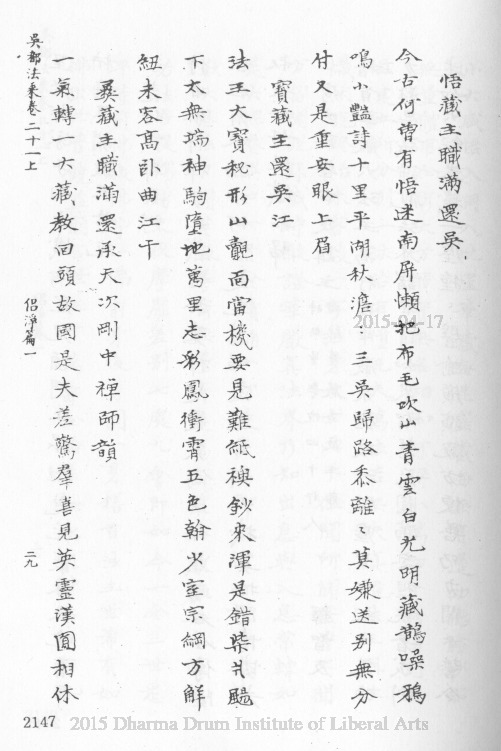 悟藏主職滿還吳
今古何曾有悟迷南屏懶把布毛吹山青雲白光明藏鵲噪鴉
鳴小豔詩十里平湖秋澹三吳歸路黍離〻莫嫌送別無分
付又是重安眼上眉
寶藏主還吳江
法王大寶秘形山覿面當機要見難紙襖鈔來渾是錯柴片颺
下太無端神駒墮地萬里志彩鳳衝霄五色翰少室宗綱方解
紐未容高卧曲江干
彝藏主職滿還承天次剛中禪師韻
一氣轉大藏教回頭故國是夫差驚羣喜見英靈漢圓相休
吳都法乘卷二十一上
侶淨篇一
二九
2147
2015-04-17
2015 Dharma Drum Institute of Liberal Arts